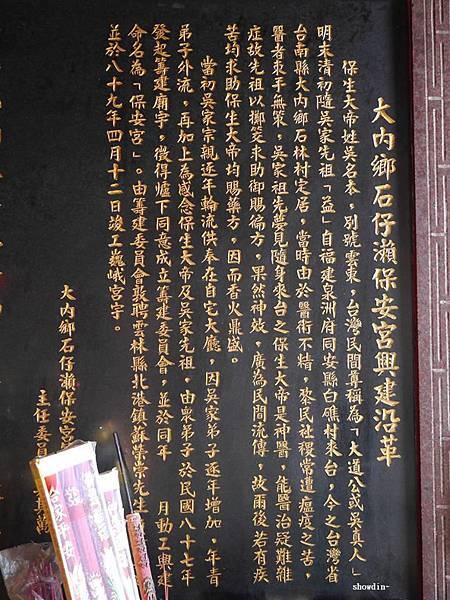 大內鄉石仔瀨保安宮興建沿革
保生大帝姓吳名本，別號雲東，台灣民間尊稱為「大道公或吳真人」
明末清初隨吳家先祖「益」自福建泉洲府同安縣白礁村來台，今之台灣省
台南縣大內鄉石林村定居，當時由於醫術不精，黎民社稷常遭瘟疫之苦，
醫者束手無策，吳家祖先夢見隨身來台之保生大帝是神醫，能醫治疑難雜
症故先祖以擲筊求助御賜偏方，果然神效，廣為民間流傳，故爾後若有疾
苦均求助保生大帝均賜藥方，因而香火鼎盛。
當初吳家宗親逐年輪流供奉在自宅大廳，因吳家弟子逐年增加，年青
弟子外流，再加上為感念保生大帝及吳家先祖，由眾弟子於民國八十七年
發起籌建廟宇，徵得爐下同意成立籌建委員會，並於同年 月動工興建
命名為「保安宮」。由籌建委員會聘雲林縣北港鎮蘇榮崇先生
並於八十九年四月十二日竣工巍峨宮宇。
大內鄉石仔瀨保安宮
主任委員
合家平安
showdin~